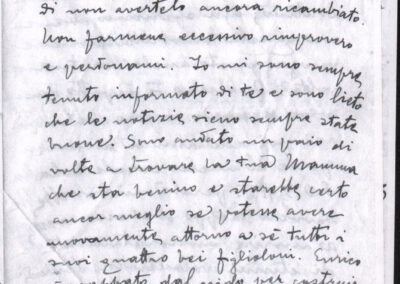 di non avertelo ancora ricambiato.
Non farmene eccessivo rimprovero
e perdonami. Io mi sono sempre
tenuto informato di te e sono lieto
che le notizie sieno sempre state
buone. Sono andato un paio di
volte a trovare la tua Mamma
che sta benino e starebbe certo
ancor meglio se potesse avere
nuovamente attorno a sè tutti i
suoi quattro bei figlioloni. Enrico
è scappato dal nido per costruir